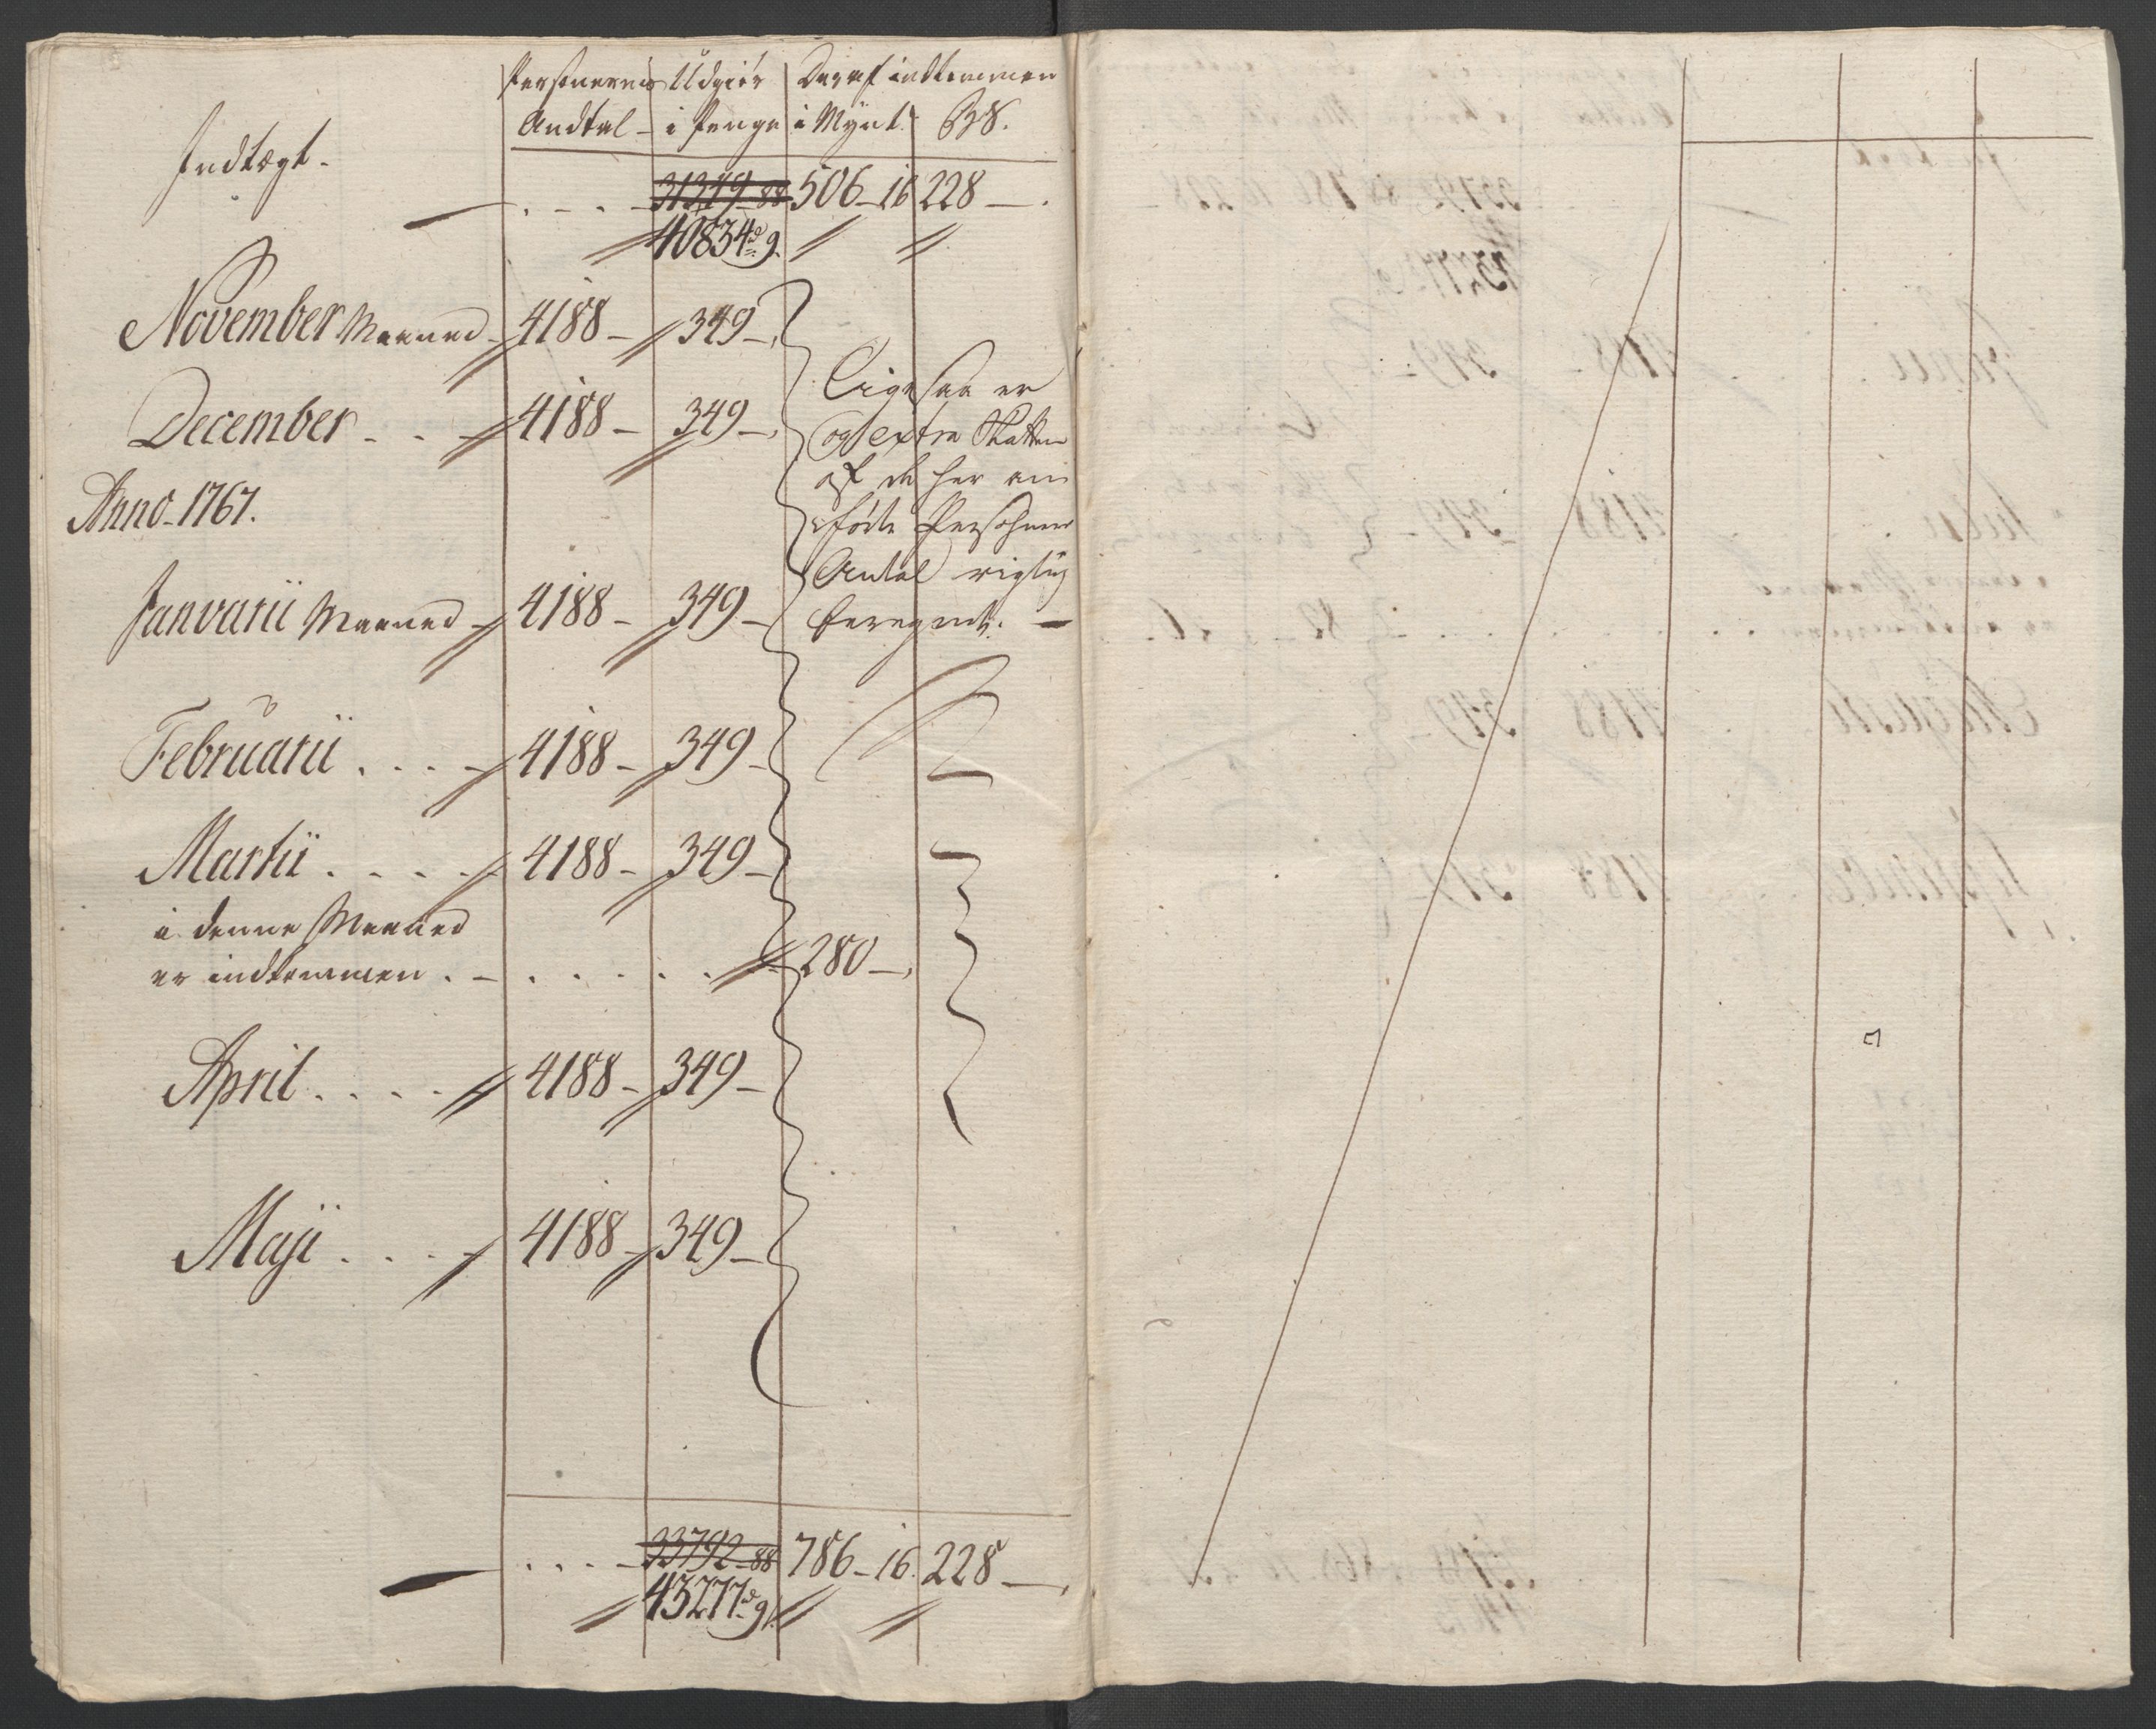 Personernes Udgiör Deraf indkommen
Andtal - i Penge i Mynt.
Indtægt.
31349 88 506 - 16 228 - .
40834 9.
November Maaned - 4188 - 349 -
December . . - 4188 - 349 -
Anno 1767.
Januarii Maaned - 4188 - 349 -
Februarii . . . - 4188 - 349 -
Martii . - . . 4188 - 349 -
i denne Maaned
er indkommen . - . . . . . 280 -
April . . . . 4188 - 349 -
Maji . . . 4188 - 349 -
Ligesaa er
og Extra Skatten
af de her an
førte Persohners
Antal rigtig
beregnet. -
. . . . 33792 - 88 786 - 16. 228 -
43277 91.